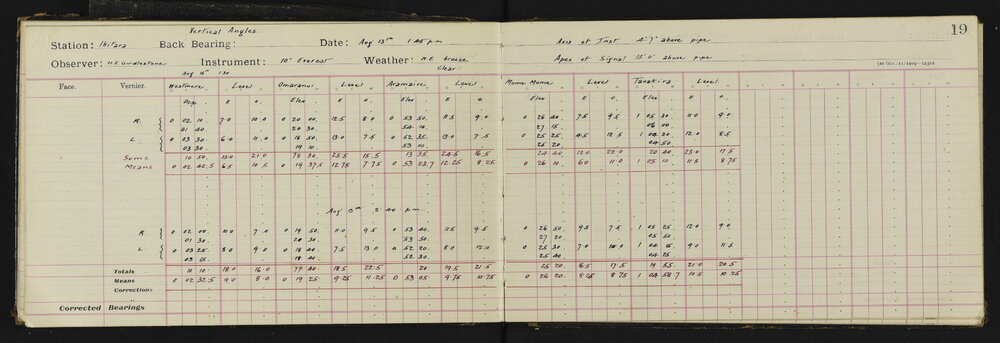 Vertical Angles 19
Station: Ikitara Back Bearing: Date: Aug 13th 1·45 pm Axis of Inst 4'·7" above pipe
Observer: H.E. Girdlestone Instrument: 10" Everest Weather: N.E. breeze Clear Apex of Signal 15'·0" above pipe
Aug 13th 1·30
Face. Vernier. Westmere Level Omaranui Level Aramaire Level Mowe Mowe Level Tawakira Level
Dep. E O. Elev E O. Elev E O. Elev E O. Elev. E O.
R 0 02 10 7·0 10·0 0 20 00 12·5 8·0 0 53 50 11·5 9·0 0 26 40 7·5 9·5 1 05 30 11·0 9·0
01 40 20 30 54 10 27 15 06 00
L 0 03 30 6·0 11·0 0 18 50 13·0 7·5 0 52 35 13·0 7·5 0 25 25 4·5 12·5 1 04 20 12·0 8·5
03 30 19 10 53 00 25 20 04 50
Sums 10 50 13·0 21·0 78 30 25·5 15·5 13 35 24·5 16·5 24 40 12·0 22·0 20 40 23·0 17·5
Means 0 02 42·5 6·5 10·5 0 19 37·5 12·75 7·75 0 53 23·7 12·25 8·25 0 26 10 6·0 11·0 1 05 10 11·5 8·75
Aug 13th 2·40 pm
R 0 02 00 11·0 7·0 0 19 50 11·0 9·5 0 53 40 11·5 9·5 0 26 50 9·5 7·5 1 05 25 12·0 9·0
01 30 20 30 53 50 27 20 05 50
L 0 03 25 8·0 9·0 0 18 40 7·5 13·0 0 52 20 8·0 12·0 0 25 30 7·0 10·0 1 04 15 9·0 11·5
03 15 18 40 52 30 25 40 04 25
Totals 10 10 18·0 16·0 77 40 18·5 22·5 20 19·5 21·5 25 20 16·5 17·5 19 55 21·0 20·5
Means 0 02 32·5 9·0 8·0 0 19 25 9·25 11·25 0 53 05 9·75 10·75 0 26 20 8·25 8·75 1 04 58·7 10·5 10·25
Corrections
Corrected Bearings